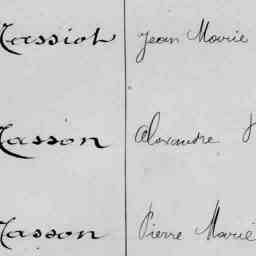 Massiot Jean Marie
Masson Alexandre
Masson Pierre Marie